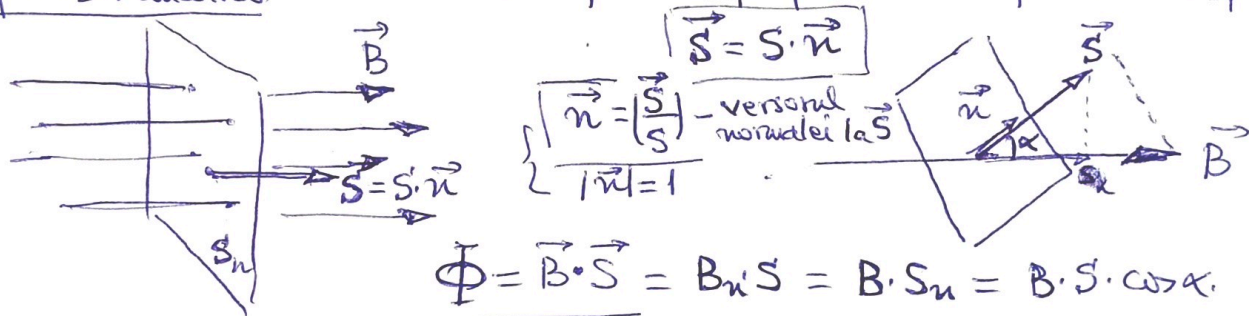 B⃗
S⃗ = S·n⃗
S⃗ = S·n⃗
Sₙ
n⃗ = (S⃗/S) – versorul normalei la S⃗
|n⃗| = 1
S⃗
n⃗
α
Sₙ
B⃗
Φ = B⃗·S⃗ = Bₙ·S = B·Sₙ = B·S·cosα.